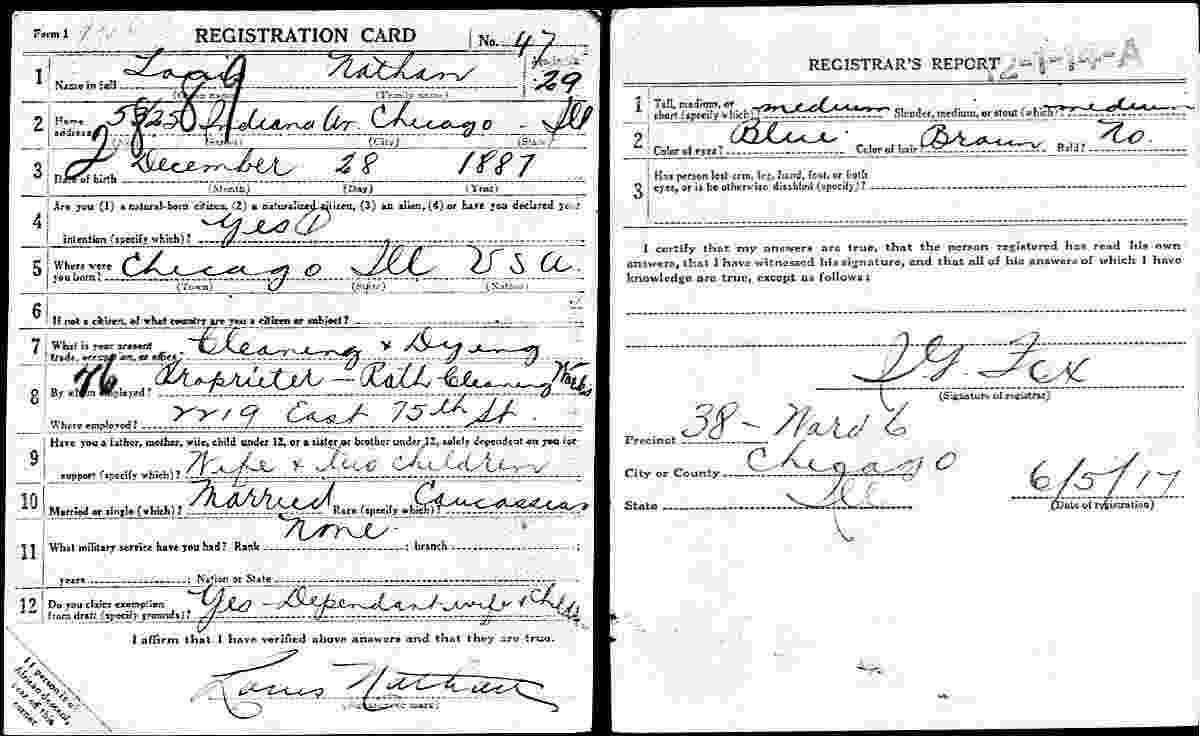 Form 1
REGISTRATION CARD
No. 47
1 Name in full Louis Nathan
(Given name) (Family name)
Age, in yrs. 29
2 Home address 5825 Indiana Av. Chicago Ill
(No.) (Street) (City) (State)
3 Date of birth December 28 1887
(Month) (Day) (Year)
4 Are you (1) a natural-born citizen, (2) a naturalized citizen, (3) an alien, (4) or have you declared your
intention (specify which)? Yes 1
5 Where were you born? Chicago Ill USA.
(Town) (State) (Nation)
6 If not a citizen, of what country are you a citizen or subject?
7 What is your present trade, occupation, or office? Cleaning & Dying
8 By whom employed? Proprieter - Rath Cleaning Works
76
Where employed? East 75th St.
9 Have you a father, mother, wife, child under 12, or a sister or brother under 12, solely dependent on you for
support (specify which)? Wife & two children
10 Married or single (which)? Married Race (specify which)? Caucassian
None
11 What military service have you had? Rank ; branch ;
years ; Nation or State
12 Do you claim exemption from draft (specify grounds)? Yes - Dependant wife & Childr
I affirm that I have verified above answers and that they are true.
Louis Nathan
(Signature or mark)
If person is of African descent, tear off this corner
REGISTRAR'S REPORT
12-1-14-A
1 Tall, medium, or short (specify which)? medium Slender, medium, or stout (which)? medium
2 Color of eyes? Blue Color of hair Brown Bald? No.
3 Has person lost arm, leg, hand, foot, or both eyes, or is he otherwise disabled (specify)?
I certify that my answers are true, that the person registered has read his own
answers, that I have witnessed his signature, and that all of his answers of which I have
knowledge are true, except as follows:
Fox
(Signature of registrar)
Precinct 38 - Ward 6
City or County Chicago
State Ill
6/5/17
(Date of registration)